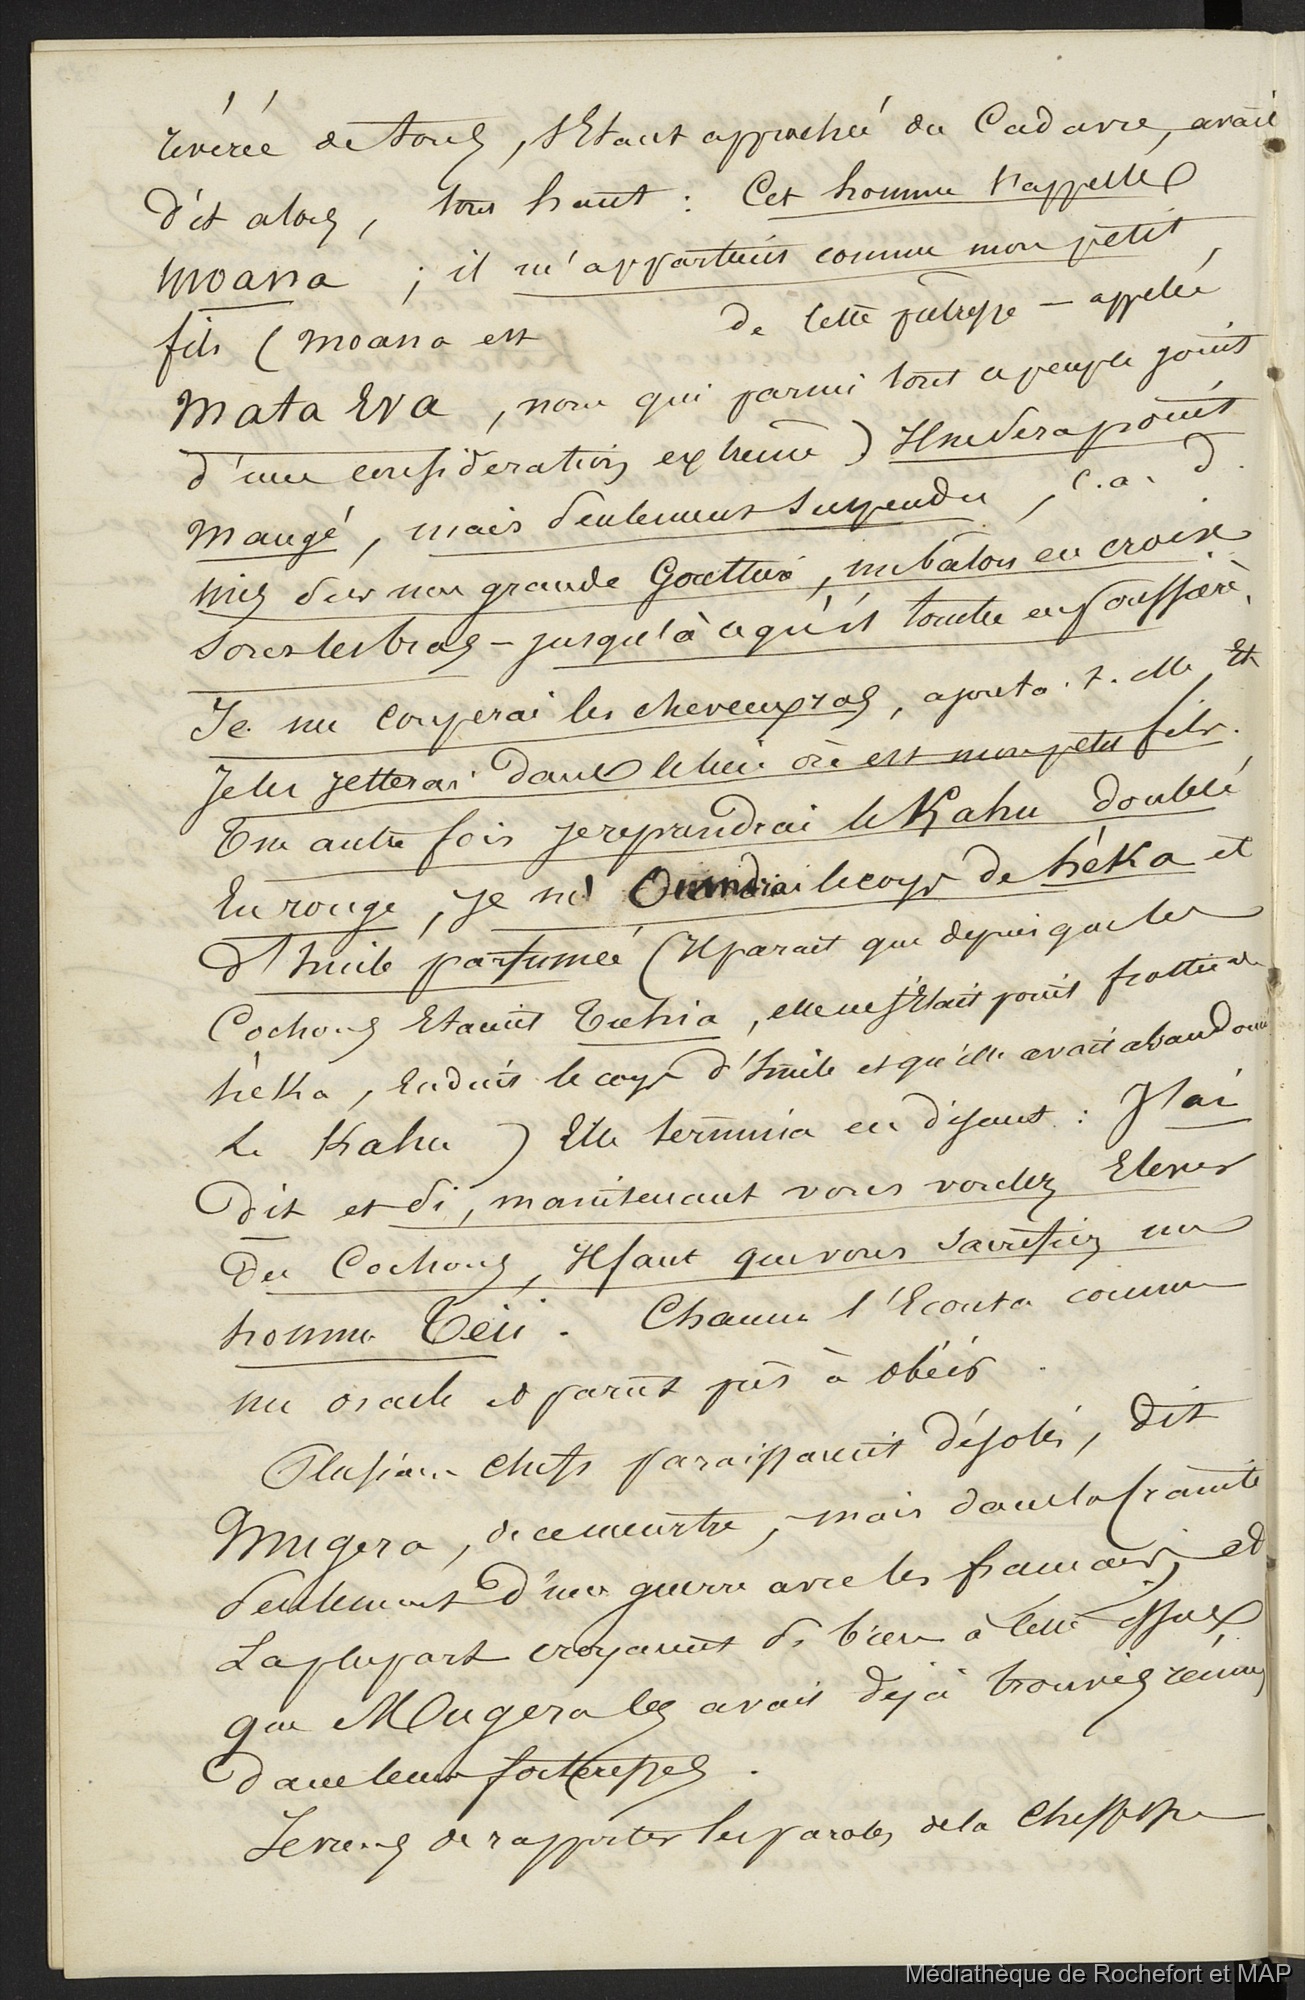 révérée de tous, s'Etant approchée du Cadavre, avait
dit alors, tout haut : Cet homme s'appelle
Moana ; il m'appartient comme mon petit
fils (Moana est de cette prêtresse — appelée
Mata Eva, nom qui parmi tout ce peuple jouit
d'une considération extrême) Il ne sera point
Mangé, mais seulement suspendu, c. a. d.
mis sur une grande Gouttière, un bâton en croix
sous les bras — jusqu'à ce qu'il tombe en poussière,
Je me couperai les cheveux ras, ajouta-t-elle, Et
Je les jetterai dans le lieu où est mon petit fils.
Une autre fois je reprendrai le Kahu doublé
En rouge, je m' Oinndrai le corps de héka et
d'huile parfumée (Il parait que depuis que les
Cochons Etaient Tuhia, elle ne s'Etait point frottée de
héka, Enduit le corps d'huile et qu'elle avait abandonné
Le Kahu) Elle termina en disant : J'ai
Dit et si, maintenant vous voulez Elever
Des Cochons, Il faut que vous sacrifiez un
homme Téii. Chacun l'Ecouta comme
un oracle et parut prêt à obéir.
Plusieurs chefs paraissaient désolés, dit
Mugera, de ce meurtre, mais dans la crainte
seulement d'une guerre avec les français, et
La plupart croyaient si bien à cette issue
que Mugera les avait déjà trouvés réunis
dans leurs forteresses.
Je viens de rapporter les paroles de la Cheffesse
Médiathèque de Rochefort et MAP